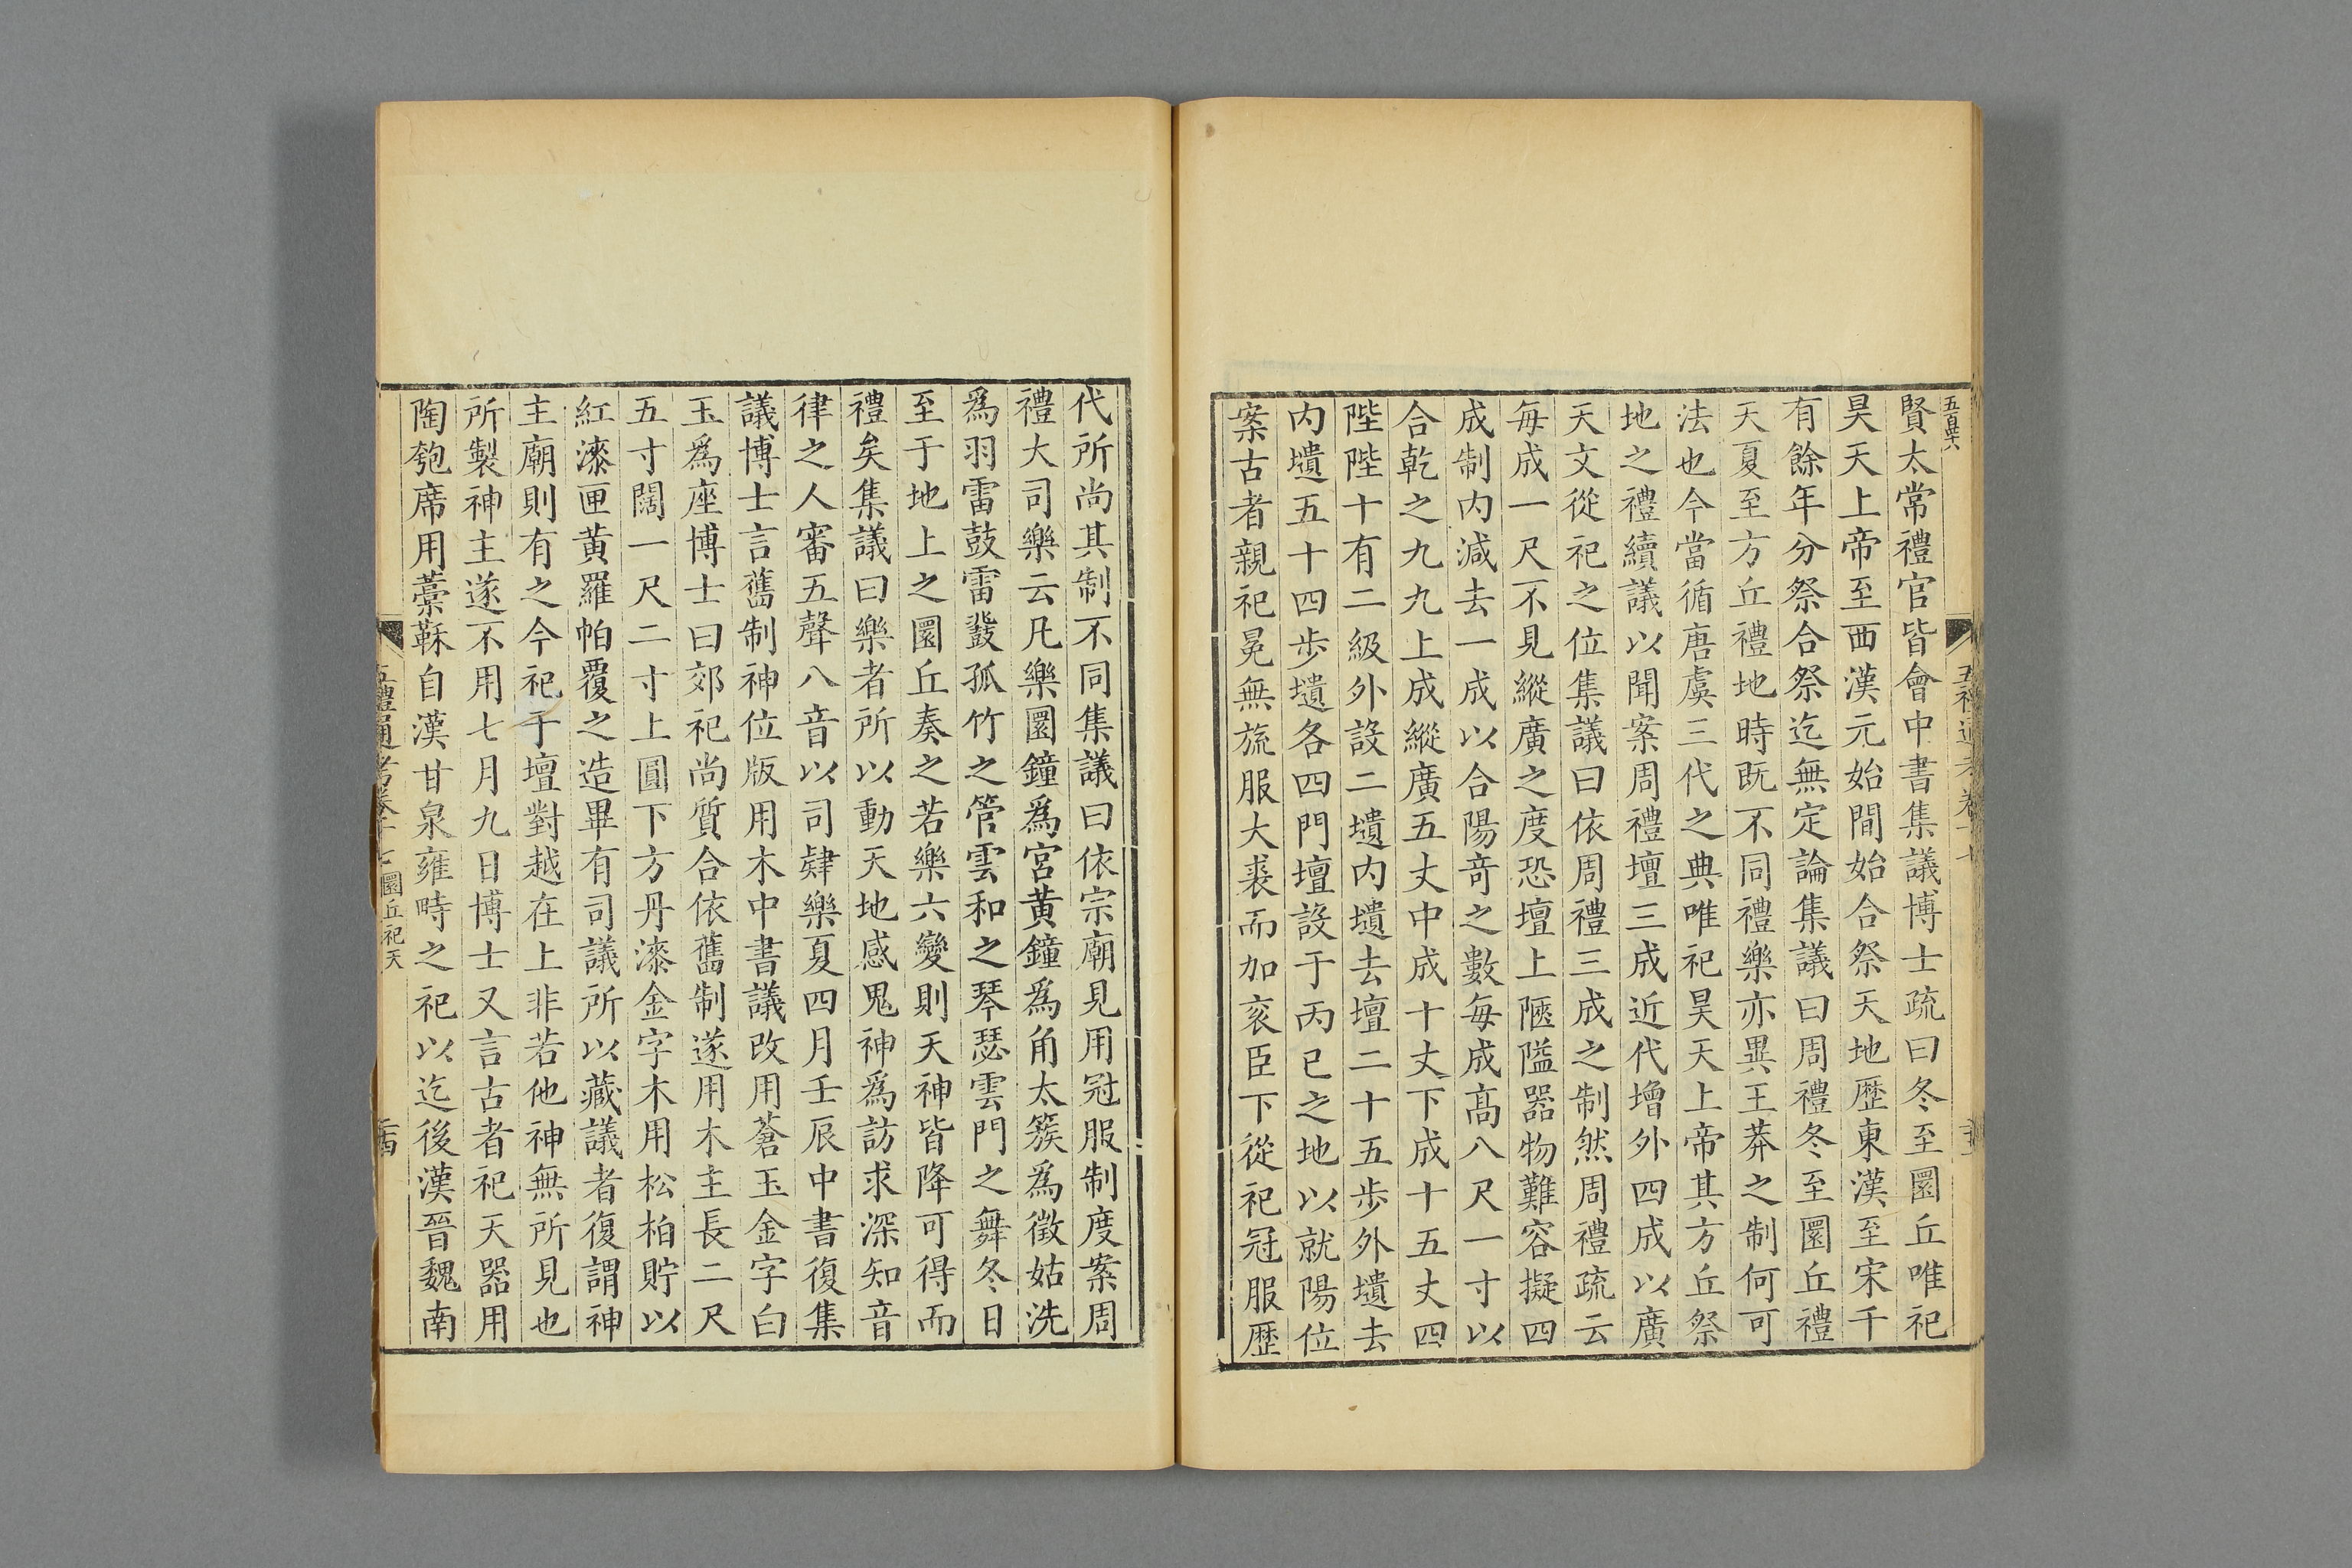 五百卌六
賢太常禮官皆會中書集議博士疏曰冬至圜丘唯祀
昊天上帝至西漢元始間始合祭天地歷東漢至宋千
有餘年分祭合祭迄無定論集議曰周禮冬至圜丘禮
天夏至方丘禮地時既不同禮樂亦異王莽之制何可
法也今當循唐虞三代之典唯祀昊天上帝其方丘祭
地之禮續議以聞案周禮壇三成近代增外四成以廣
天文從祀之位集議曰依周禮三成之制然周禮疏云
每成一尺不見縱廣之度恐壇上陿隘器物難容擬四
成制内減去一成以合陽奇之數每成高八尺一寸以
合乾之九九上成縱廣五丈中成十丈下成十五丈四
陛陛十有二級外設二壝内壝去壇二十五步外壝去
内壝五十四步壝各四門壇設于丙巳之地以就陽位
案古者親祀冕無旒服大裘而加衮臣下從祀冠服歷
代所尚其制不同集議曰依宗廟見用冠服制度案周
禮大司樂云凡樂圜鐘爲宮黃鐘爲角太簇爲徵姑洗
爲羽雷鼓雷鼗孤竹之管雲和之琴瑟雲門之舞冬日
至于地上之圜丘奏之若樂六變則天神皆降可得而
禮矣集議曰樂者所以動天地感鬼神爲訪求深知音
律之人審五聲八音以司肄樂夏四月壬辰中書復集
議博士言舊制神位版用木中書議改用蒼玉金字白
玉爲座博士曰郊祀尚質合依舊制遂用木主長二尺
五寸闊一尺二寸上圓下方丹漆金字木用松柏貯以
紅漆匣黃羅帕覆之造畢有司議所以藏議者復謂神
主廟則有之今祀于壇對越在上非若他神無所見也
所製神主遂不用七月九日博士又言古者祀天器用
陶匏席用藁鞂自漢甘泉雍畤之祀以迄後漢晉魏南
五禮通考卷十七 圜丘祀天 二四